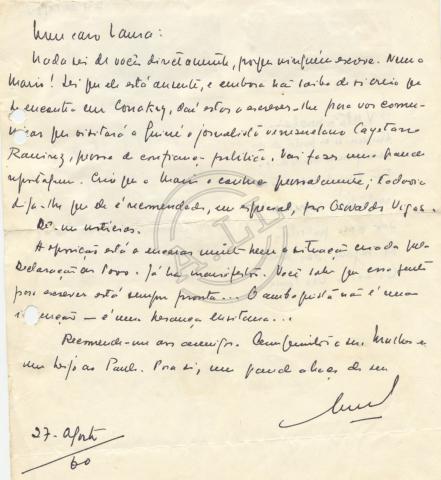 Meu caro Lara:
Nada sei de vocês directamente, porque ninguém escreve. Nem o
Mario! Sei que ele está ausente, e embora não saiba de si creio que
se encontra em Conakry, daí estar a escrever-lhe para vos comu-
nicar que visitará a Guiné o jornalista venezuelano Cayetano
Ramirez, pessoa de confiança política. Vai fazer uma grande
reportagem. Creio que o Mario o conhece pessoalmente; todavia
diga-lhe que ele é recomendado, em especial, por Oswaldo Vigas.
Dê-me notícias.
A oposição está a encarar muito bem a situação criada pela
Declaração ao Povo. Já há manifestos. Você sabe que essa gente
para escrever está sempre pronta... O é uma
- é uma herança lusitana...
Recomende-me aos amigos. Cumprimentos a sua Mulher e
um beijo ao Paulo. Para si, um grande abraço do seu
27-Agosto
60
ALD